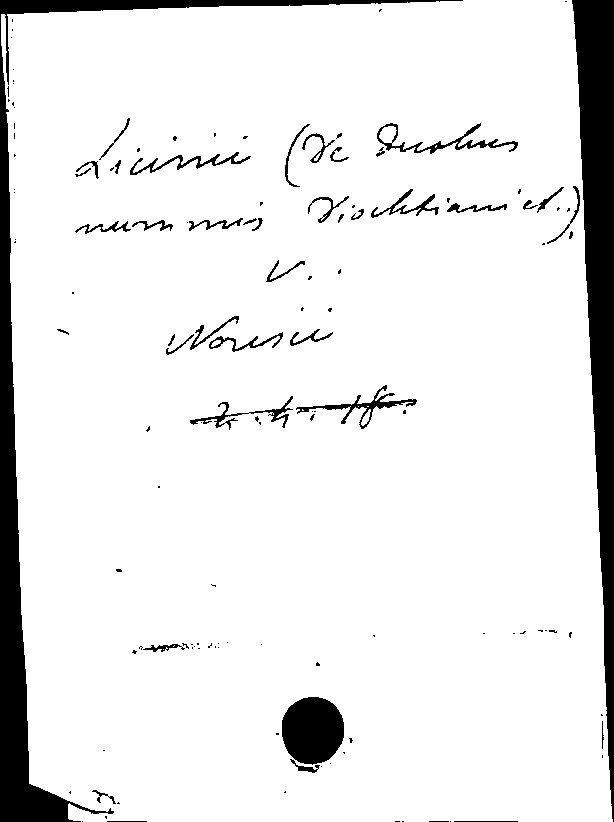 Licinii (De duobus
nummis Diocletiani et..).
V..
Norisii
Z. 4. 18.